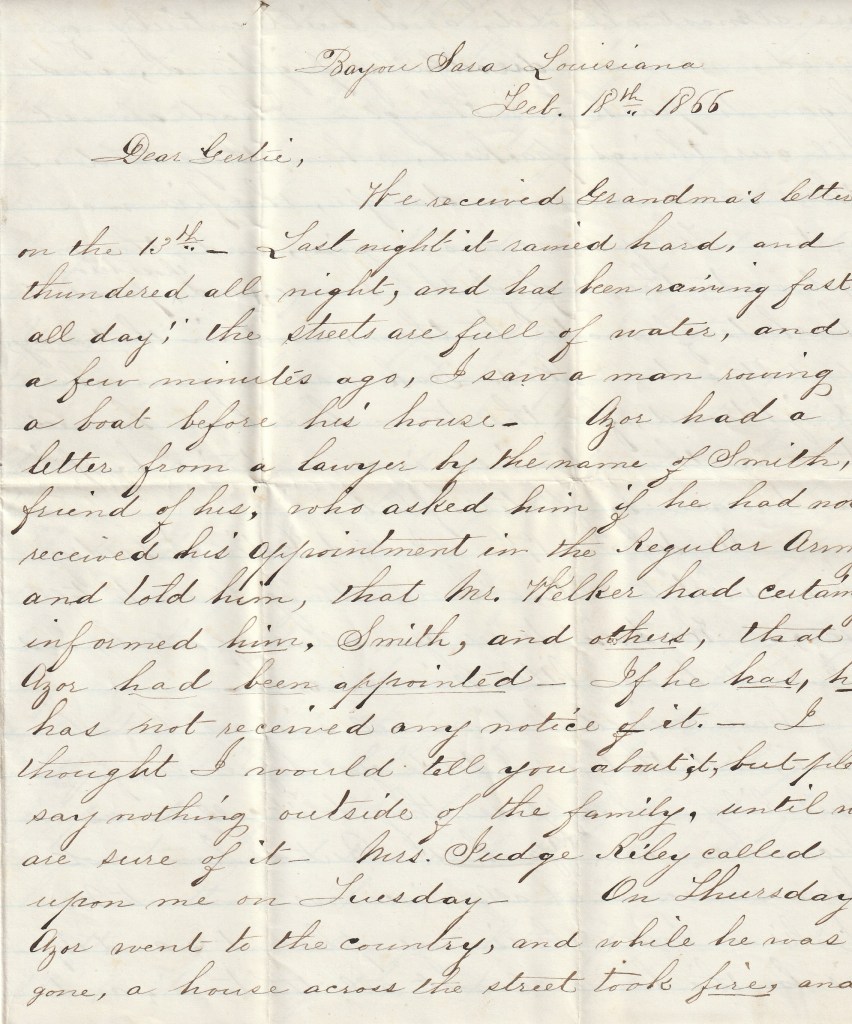 Bayou Sara Louisiana
Feb. 18th 1866
Dear Gertie,
We received Grandma's letter
on the 13th – Last night it rained hard, and
thundered all night, and has been raining fast
all day; the streets are full of water, and
a few minutes ago, I saw a man rowing
a boat before his house – Azor had a
letter from a lawyer by the name of Smith,
friend of his, who asked him if he had no
received his appointment in the Regular Arm
and told him, that Mr. Welker had certain
informed him, Smith, and others, that
Azor had been appointed – If he has, h
has not received any notice of it. – I
thought I would tell you about it, but ple
say nothing outside of the family, until
are sure of it – Mrs. Judge Riley called
upon me on Tuesday – On Thursday
Azor went to the country, and while he was
gone, a house across the street took fire, and